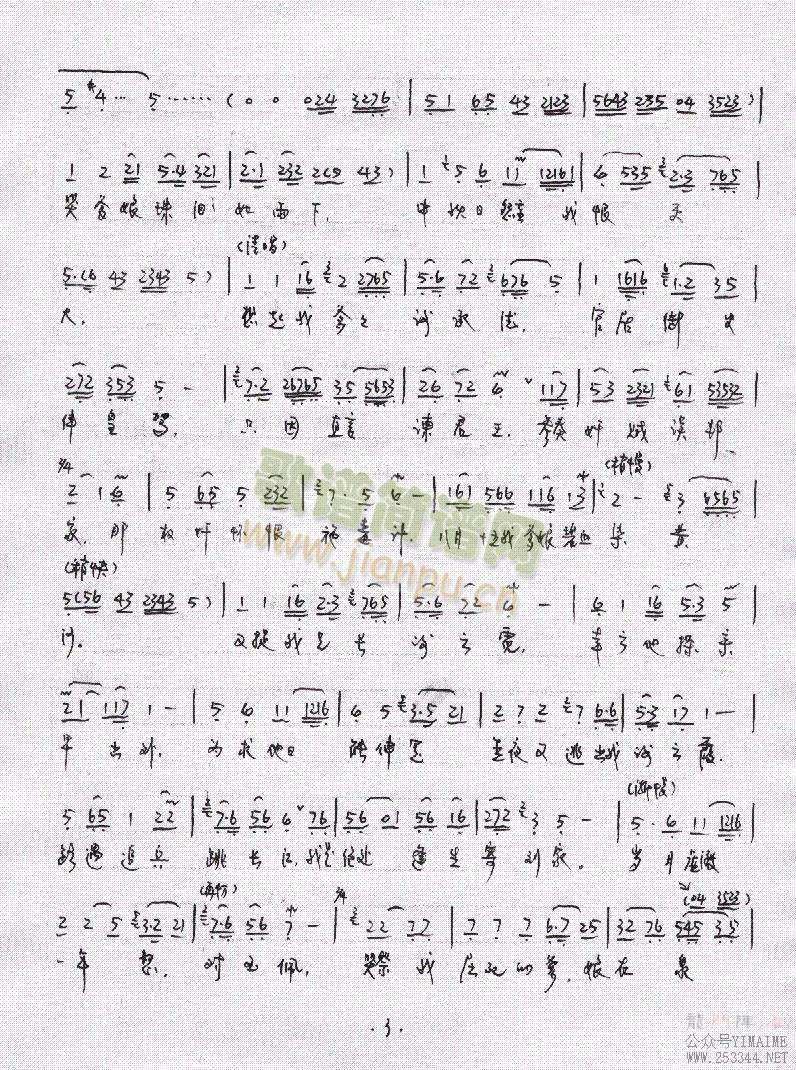 5 #4… 5…… ( 0 0 024 3276 | 5 1 65 43 2123 | 5643 235 04 3523 ) |
1 2 21 5·4 321 | 2·1 232 2(0 43) | 1 5 6 11 12161 | 6 535 2·3 765 |
哭爹娘珠泪如雨下. 中秋日 我恨 天
5·(6 43 2343 5) | 1 1 16 2 2765 | 5·6 72 676 5 | 1 1616 1·2 35 |
(清唱)
大. 想起我爹々 谢承法. 官居御史
272 353 5 – | 7·2 26765 35 5653 | 26 72 6 117 | 53 2321 61 53532 |
伴皇驾. 只因直言谏君王. 参奏奸贼误邦
2/4
2 1 6 | 5 65 5 232 | 7· 5 6 – | 161 566 116 13 | 2 – 3 6565 |
(稍慢)
家. 那权奸怀恨 毒计. 八月十五我爹娘碧血染黄
(稍快)
5(56 43 2343 5) | 1 1 16 2·3 765 | 5·6 72 6 – | 6 1 16 5·3 5 |
沙. 又捉我兄长 谢云霓. 幸亏他探亲
21 117 1 – | 5 6 11 1216 | 6 5 3·5 21 | 2 7 2 7 6·6 | 5·3 17 1 – |
早出外. 为求他日 能伸冤 连夜又逃出我谢云霞.
5 65 1 22 | 7·6 56 6 76 | 56 01 56 16 | 272 3 5 – | 5· 6 11 1216 |
(渐慢)
路遇追兵 跳长江, 我是绝处逢生寄刘家。 岁月虚度
2 2 5 3·2 21 | 7·6 56 7 – | 22 77 | 7 7 7 6·7 25 | 32 76 545 35 |
(04 3523)
一年整. 对玉佩. 哭祭我屈死的爹, 娘在 泉
·3·
歌谱简谱网
www.jianpu.cn
龍門陣
公众号YIMAIME
www.253344.NET